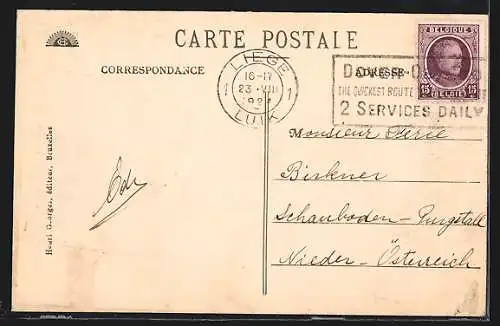 CARTE POSTALE
CORRESPONDANCE
ADRESSE
LIEGE
16-17
23 VIII
1 1
LUIK
DOVER-
THE QUICKEST ROUTE
2 SERVICES DAILY
BELGIQUE
15 BELGIE 15
Monsieur
Birkner
Schauboden - Purgstall
Nieder-Österreich
Henri Georges, éditeur, Bruxelles